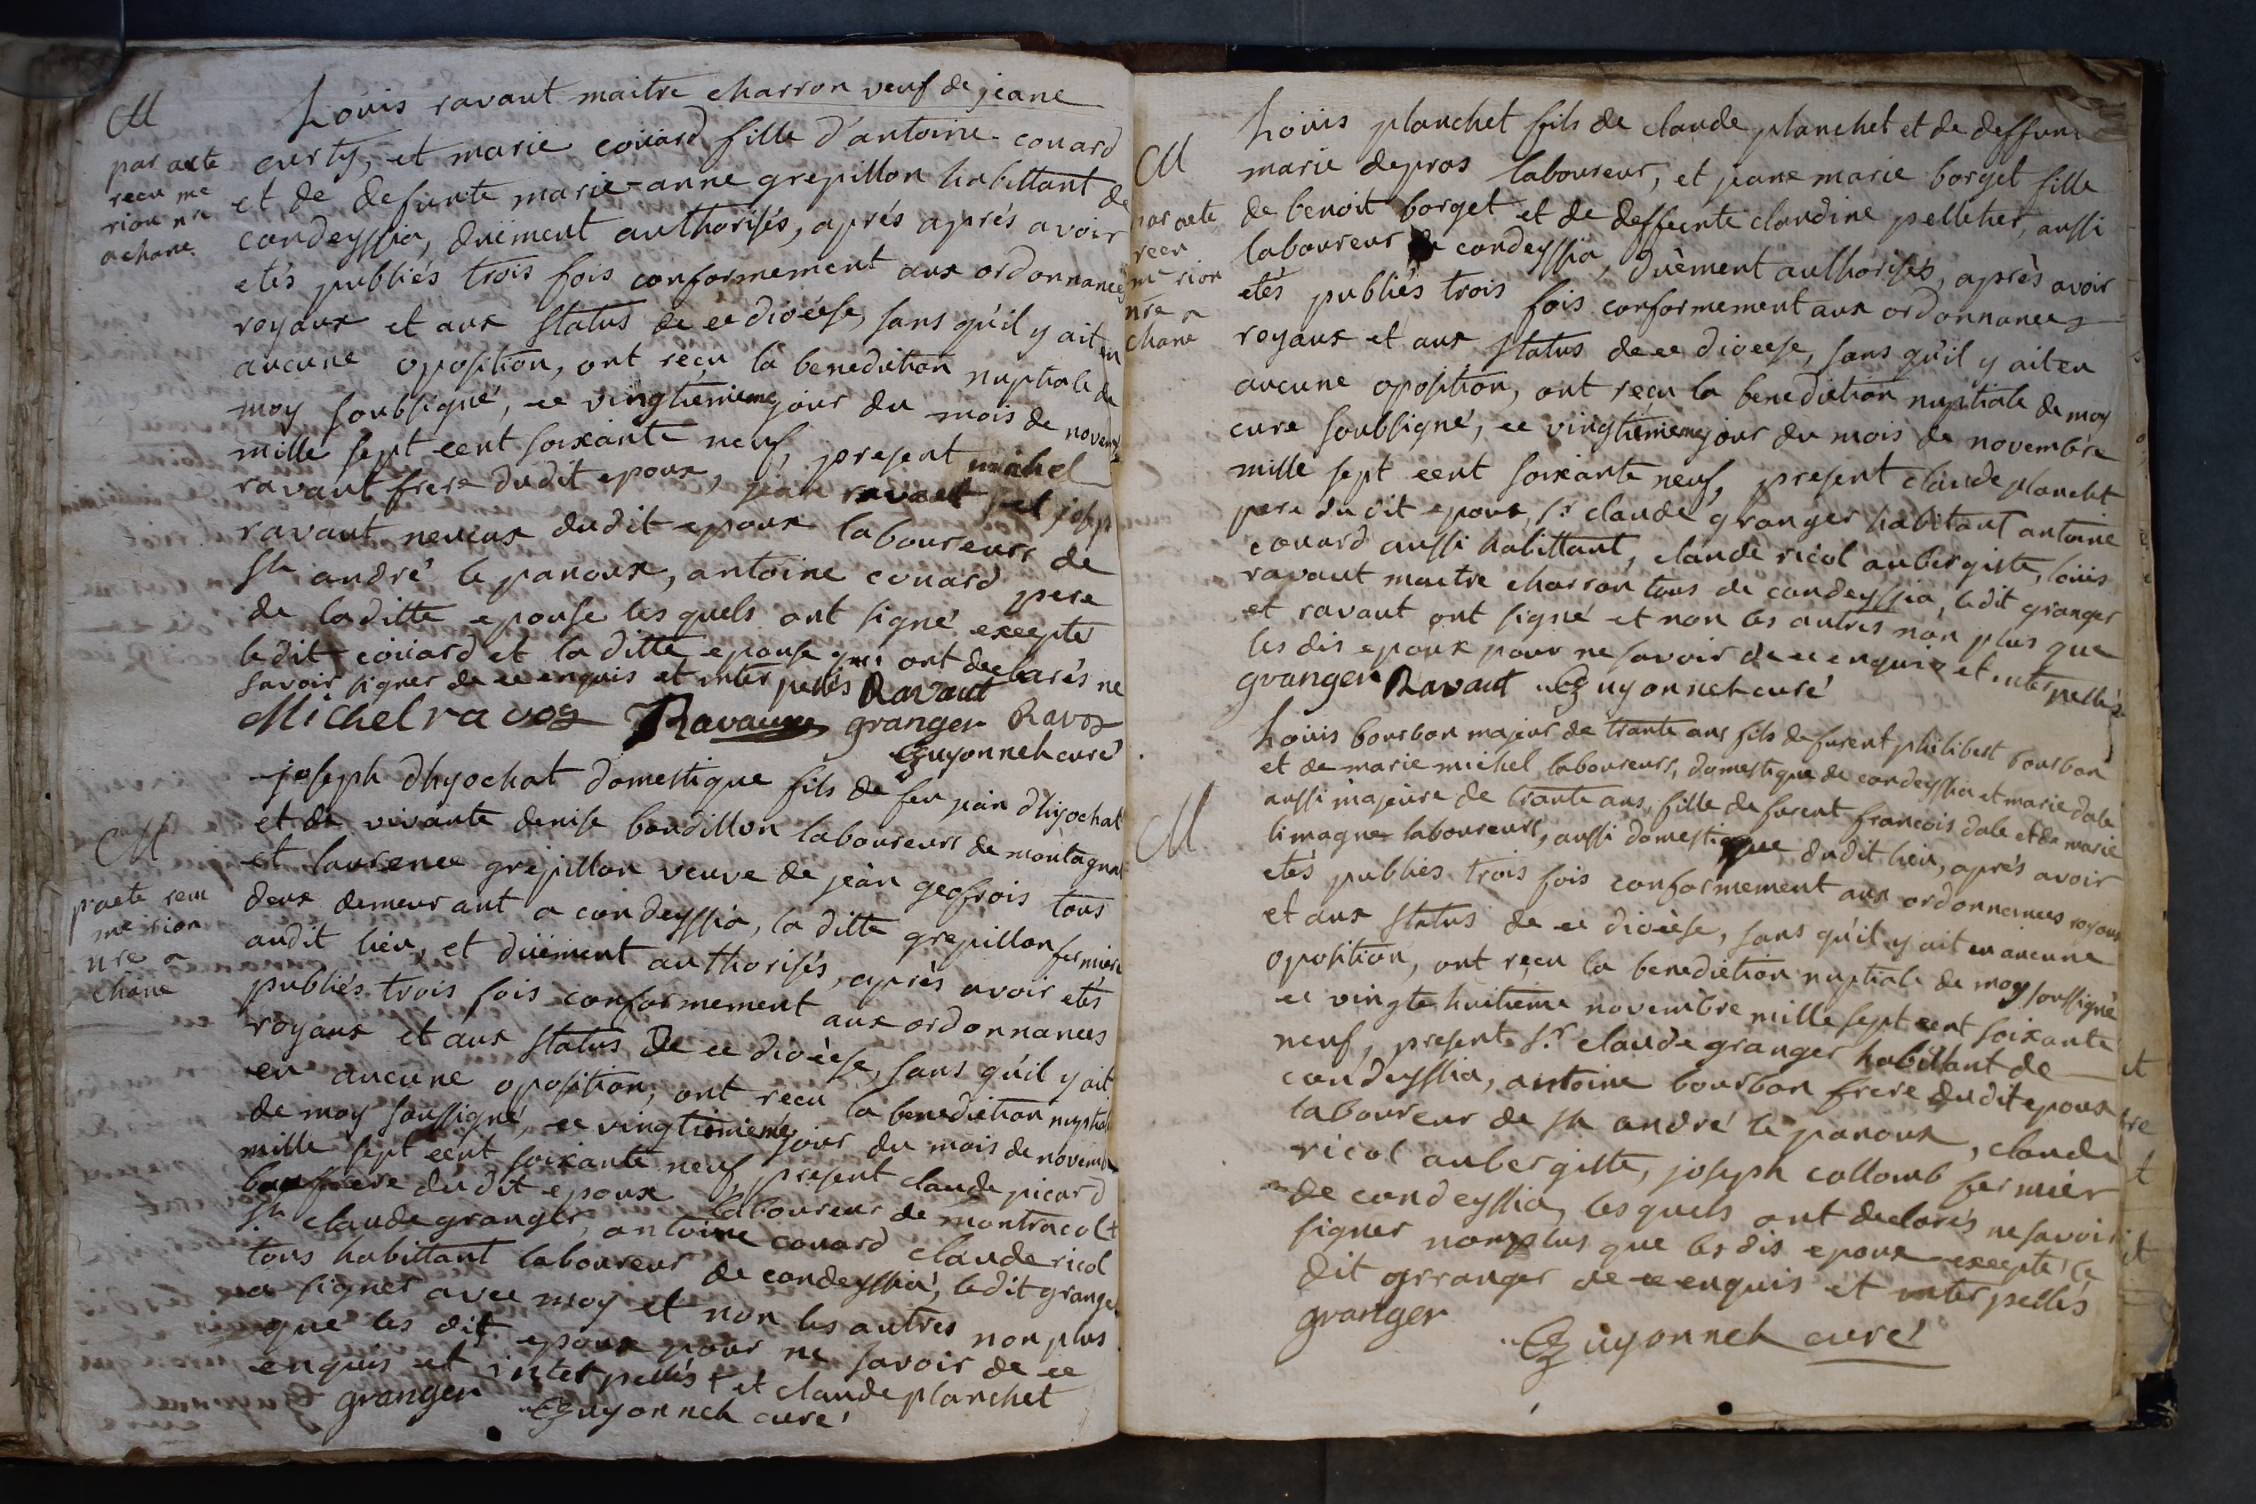 M
par acte
recu me
rion nre
a chane.
Louis ravaut maitre charron veuf de jeane
curty, et marie coüard fille d'antoine couard
et de defunte marie-anne grepillon habittant de
condeyssia, düement authorisés, aprés aprés avoir
etés publiés trois fois conformement aux ordonnances
royaux et aux status de ce diocése, sans qu'il y ait eu
aucune oposition, ont reçu la benediction nuptiale de
moy soubsigné, ce vingtiemieme jour du mois de novembre
mille sept cent soixante neuf, present michel
ravaut frere dudit epoux, jean ravaut et josep
ravaut neveux dudit epoux laboureurs de
st andré le panoux, antoine couard pere
de laditte epouse les quels ont signé excepté
ledit coüard et la ditte epouse qui ont declarés ne
savoir signer de ce enquis et inter pellés Ravaut
Michel ravoz Ravaux granger Ravoz
Guyonneh curé
M
p acte recu
me rion
nre a
chane
joseph dhyochat domestique fils de feu jean dhyochat
et de vivante denise boudillon laboureurs de montagnat
et laurence grepillon veuve de jean geofrois tous
deux demeurant a condeyssia, la ditte grepillon fermiere
audit lieu, et düement authorisés, après avoir etés
publiés trois fois conformement aux ordonnances
royaux et aux status de ce diocèse, sans qu'il y ait
eu aucune oposition, ont recu la benediction nuptial
de moy soussigné, ce vingtiemieme jour du mois de novembre
mille sept cent soixante neuf, present claude picard
beaufrere dudit epoux laboureur de montracol +
sr claude granger, antoine couard claude ricol
tous habittant laboureur de condeyssia, ledit granger
a signer avec moy et non les autres non plus
que les dit epoux pour ne savoir de ce
enquis et inter pellés + et claude planchet
granger Guyonneh curé
M
par acte
recu
me rion
nre a
chane
Louis planchet fils de claude planchet et de deffun
marie depras laboureur, et jeane marie borget fille
de benoit borget et de deffeunte claudine pelletier, aussi
laboureur de condeyssia, düèment authorisés, après avoir
etés publiés trois fois conformement aux ordonnances
royaux et aux status de ce diocese, sans qu'il y ait eu
aucune oposition, ont reçu la benediction nuptiale de moy
cure soubsigné, ce vingtiemieme jour du mois de novembre
mille sept cent soixante neuf, present claude planchet
pere du dit epoux, sr claude granger habitant antoine
couard aussi habittant, claude ricol aubergiste, loüis
ravaut maitre charron tous de condeyssia, ledit granger
et ravaut ont signé et non les autres non plus que
les dis epoux pour ne savoir de ce enquis et inter pellés
granger Ravaut Guyonneh curé
M
Louis bourbon majeur de trante ans fils de furent philibert bourbon
et de marie michel laboureurs, domestique de condeyssia et marie dale
aussi majeure de trante ans, fille de furent francois dale et de marie
limagne laboureurs, aussi domestique dudit lieu, aprés avoir
etés publiés trois fois conformement aux ordonnances royaux
et aux status de ce diocèse, sans qu'il y ait eu aucune
oposition, ont reçu la benediction nuptiale de moy soussigné
ce vingte huitieme novembre mille sept cent soixante
neuf, present sr claude granger habittant de
condeyssia, antoine bourbon frere dudit epoux
laboureur de st andré le panoux, claude
ricol aubergiste, joseph collomb fermier
de condeyssia, les quels ont declarés ne savoir
signer non plus que les dis epoux excepté le
dit grranger de ce enquis et inter pellés
granger
Guyonneh curé